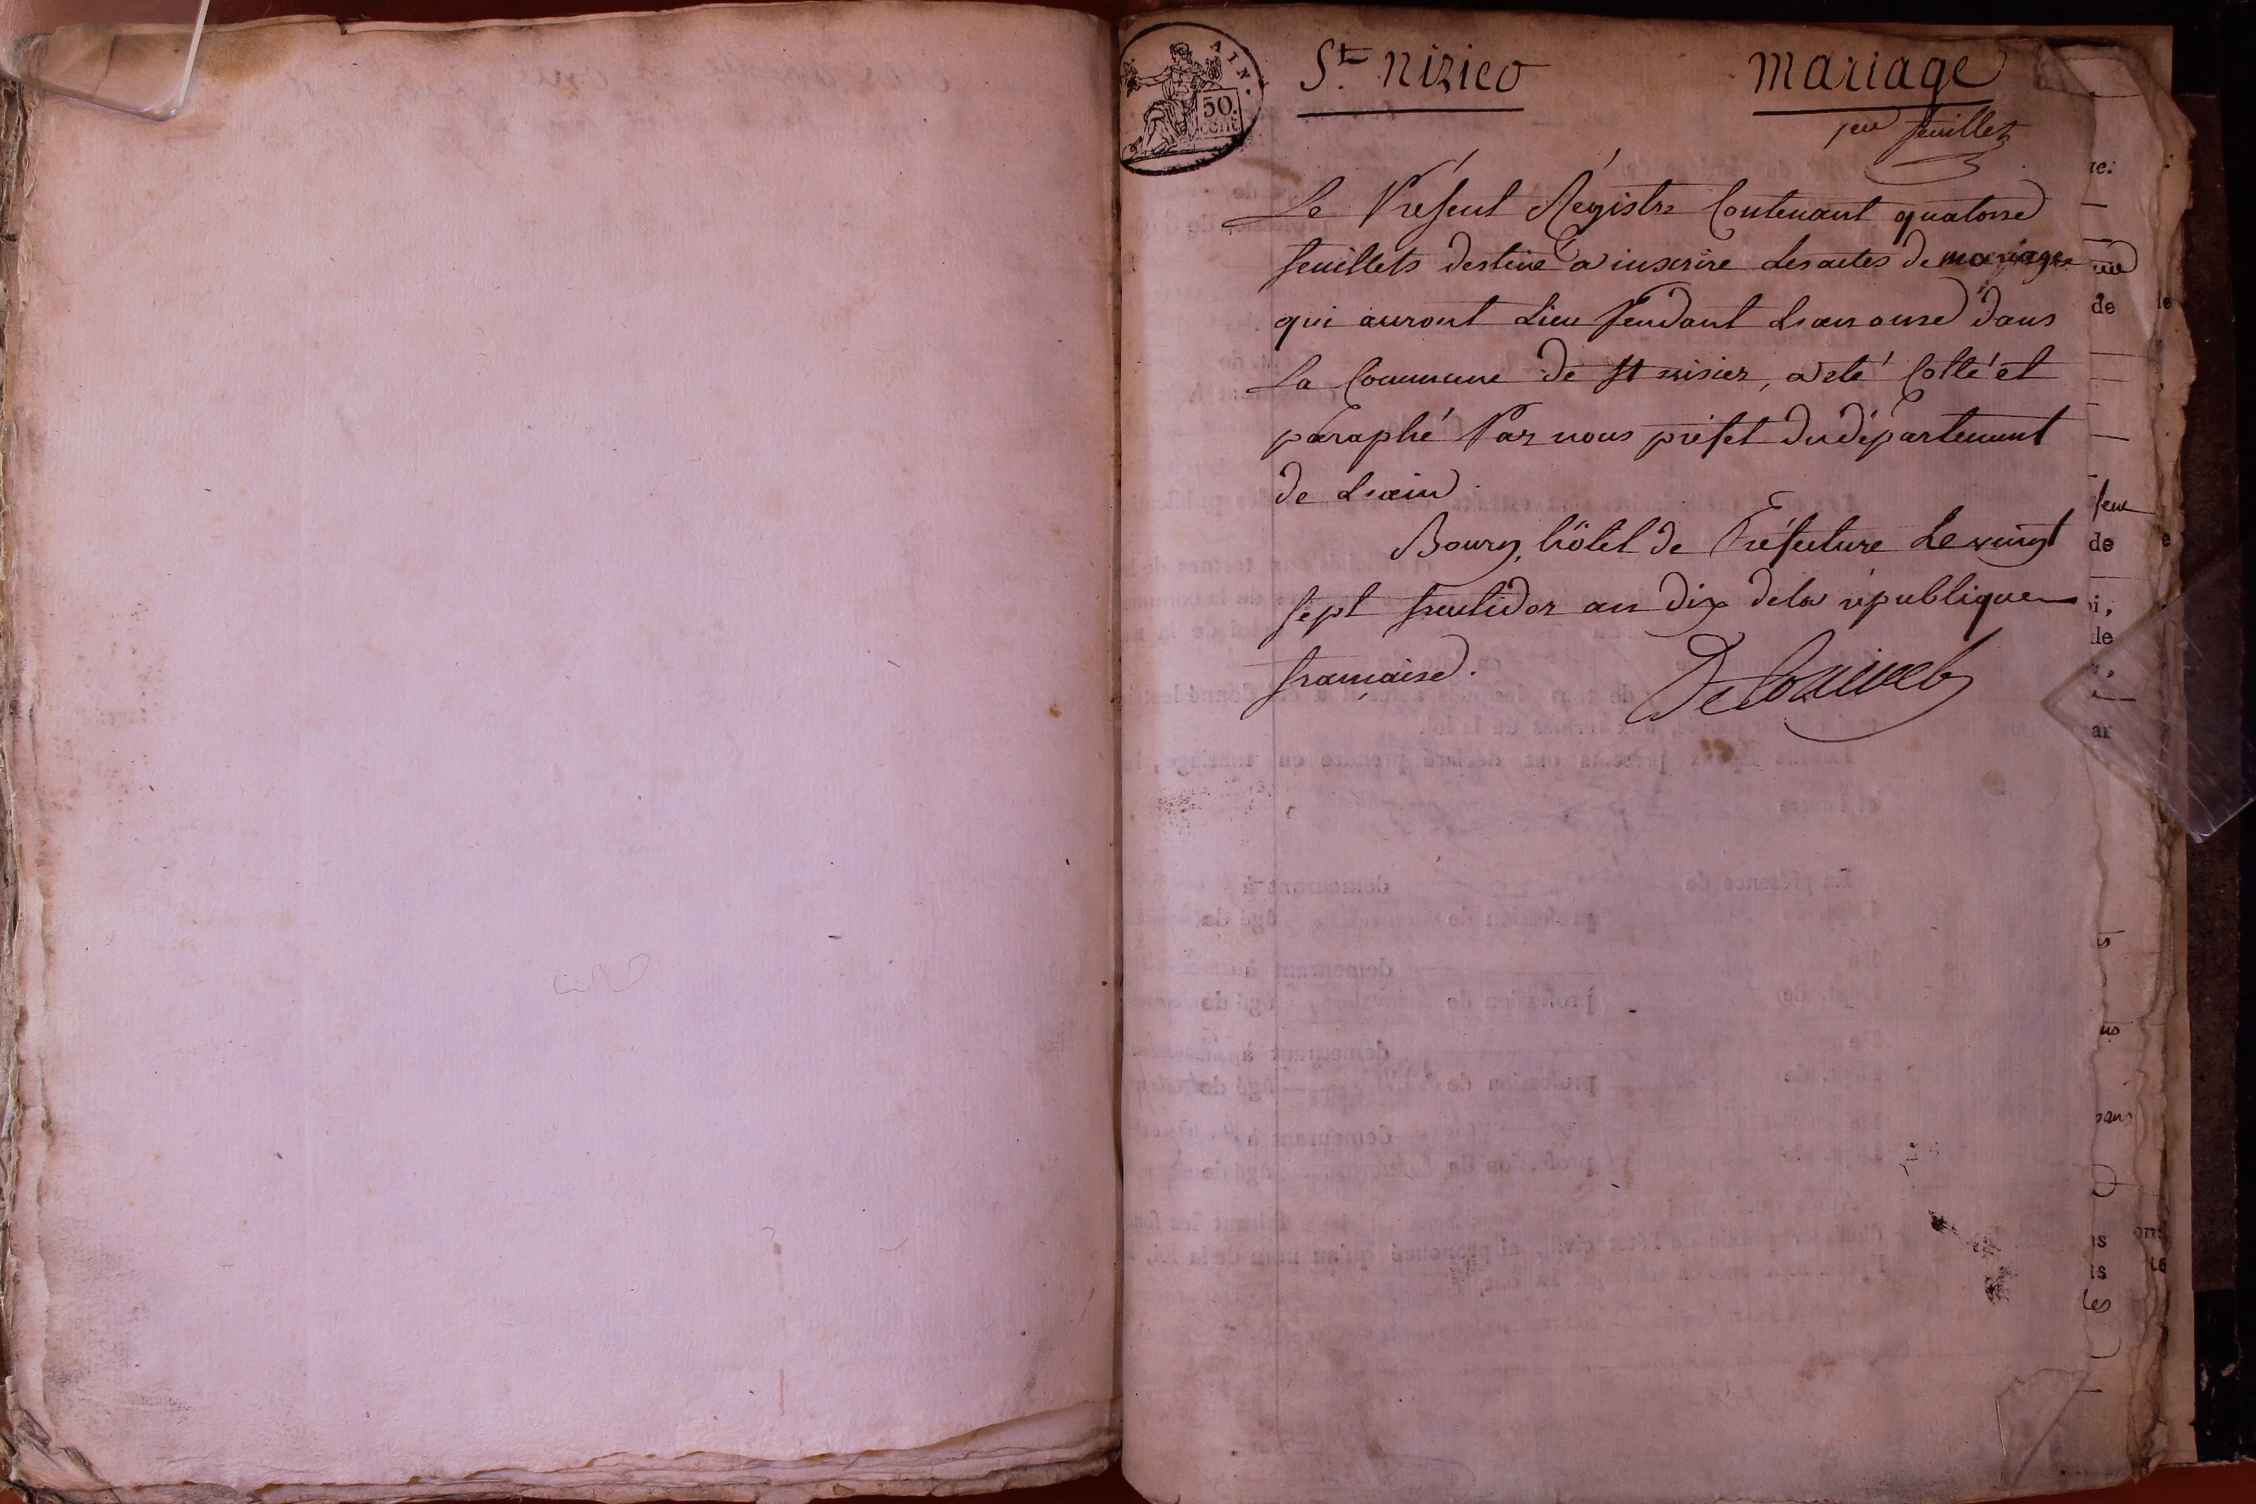 AIN.
50.
cent
St. nizieo
mariage
1er feuillet
Le Présent Régistre Contenant quatorze
feuillets destiné a inscrire les actes de mariages
qui auront Lieu Pendant L'an onze dans
La Commune de St nisier, a été Cotté et
paraphé Par nous préfet du département
de L'ain.
Bourg, hôtel de Préfecture Le vingt
sept fructidor an dix de la république
française.